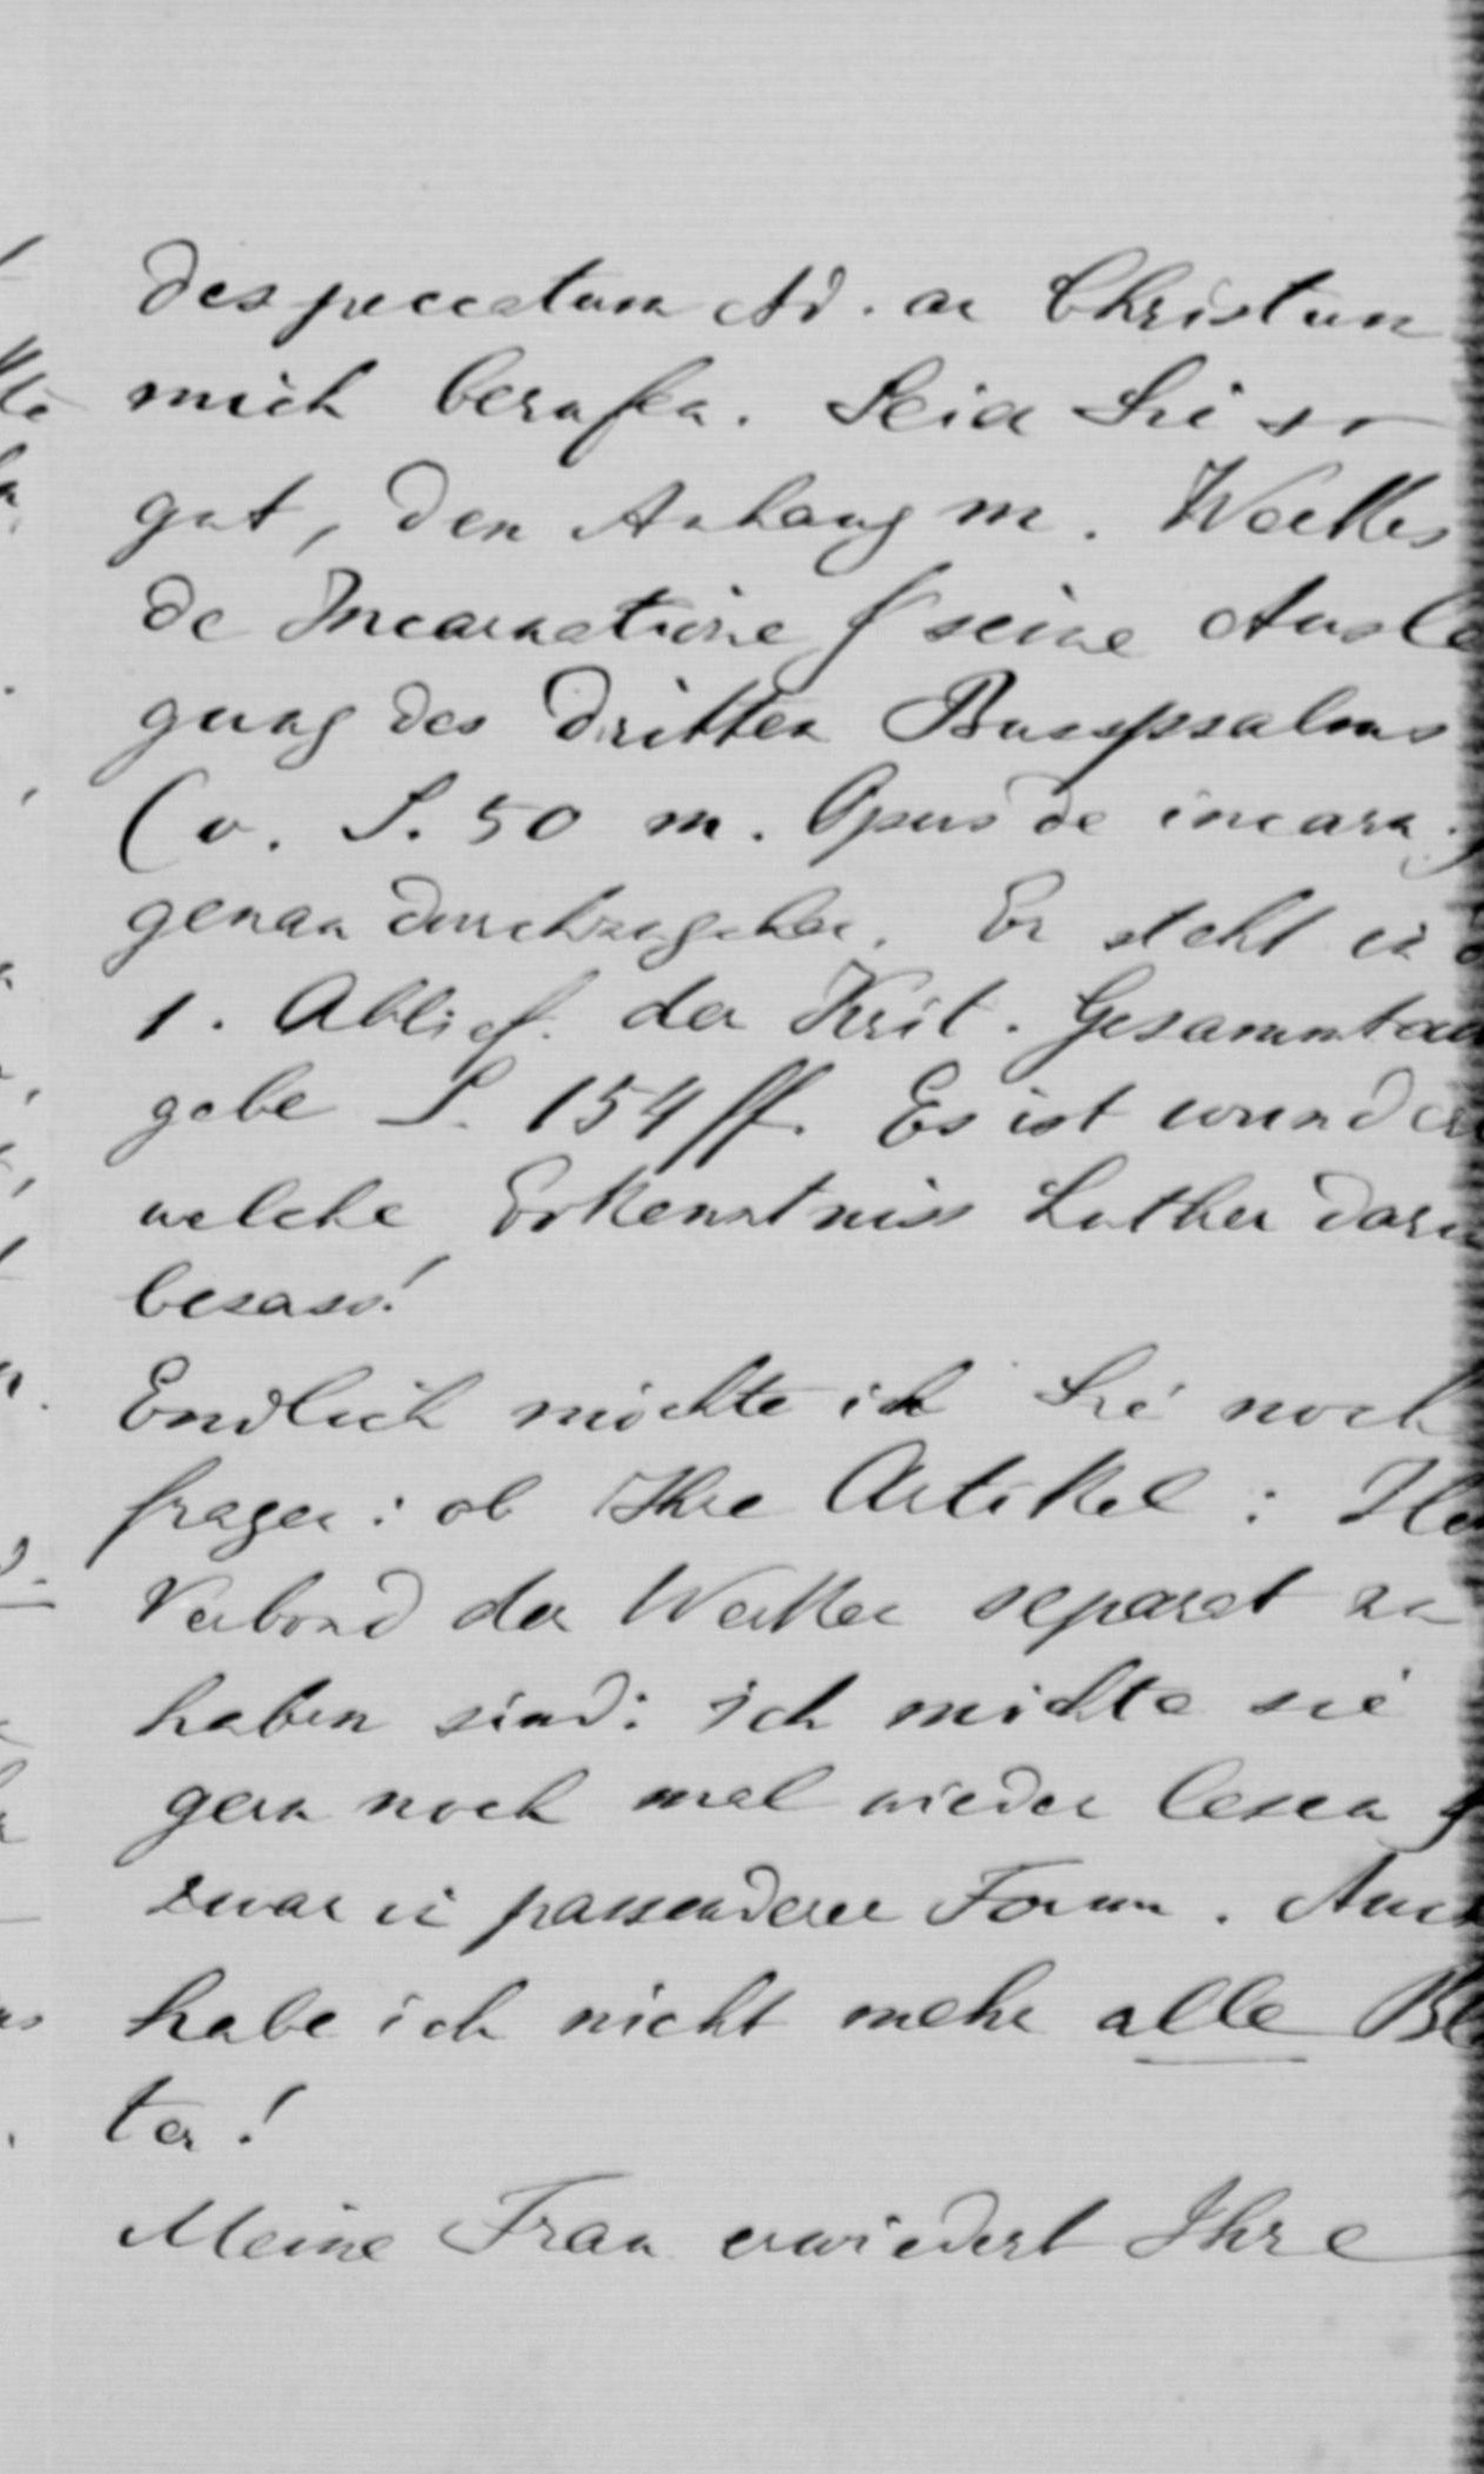 des peccatum Ad. an Christum
mich berufen. Sein Sie so
gut, den Anhang m. Werkes
de Incarnatione f seine Ausle
gung des dritten Busspsalms
(v. S. 50 m. Opus de incarn.)
genau durchzugehen. Er steht in d
1. Ablief. der Krit. Gesammtau
gabe S. 154 ff. Es ist wunder
welche Erkenntniss Luther darin
besass!
Endlich möchte ich Sie noch
fragen: ob Ihre Artikel: He
Verbond der Werken separat zu
haben sind: ich möchte sie
gern noch mal wieder lesen &
zwar in passenderer Form. Auch
habe ich nicht mehr alle Blä
ter!
Meine Frau erwiedert Ihre